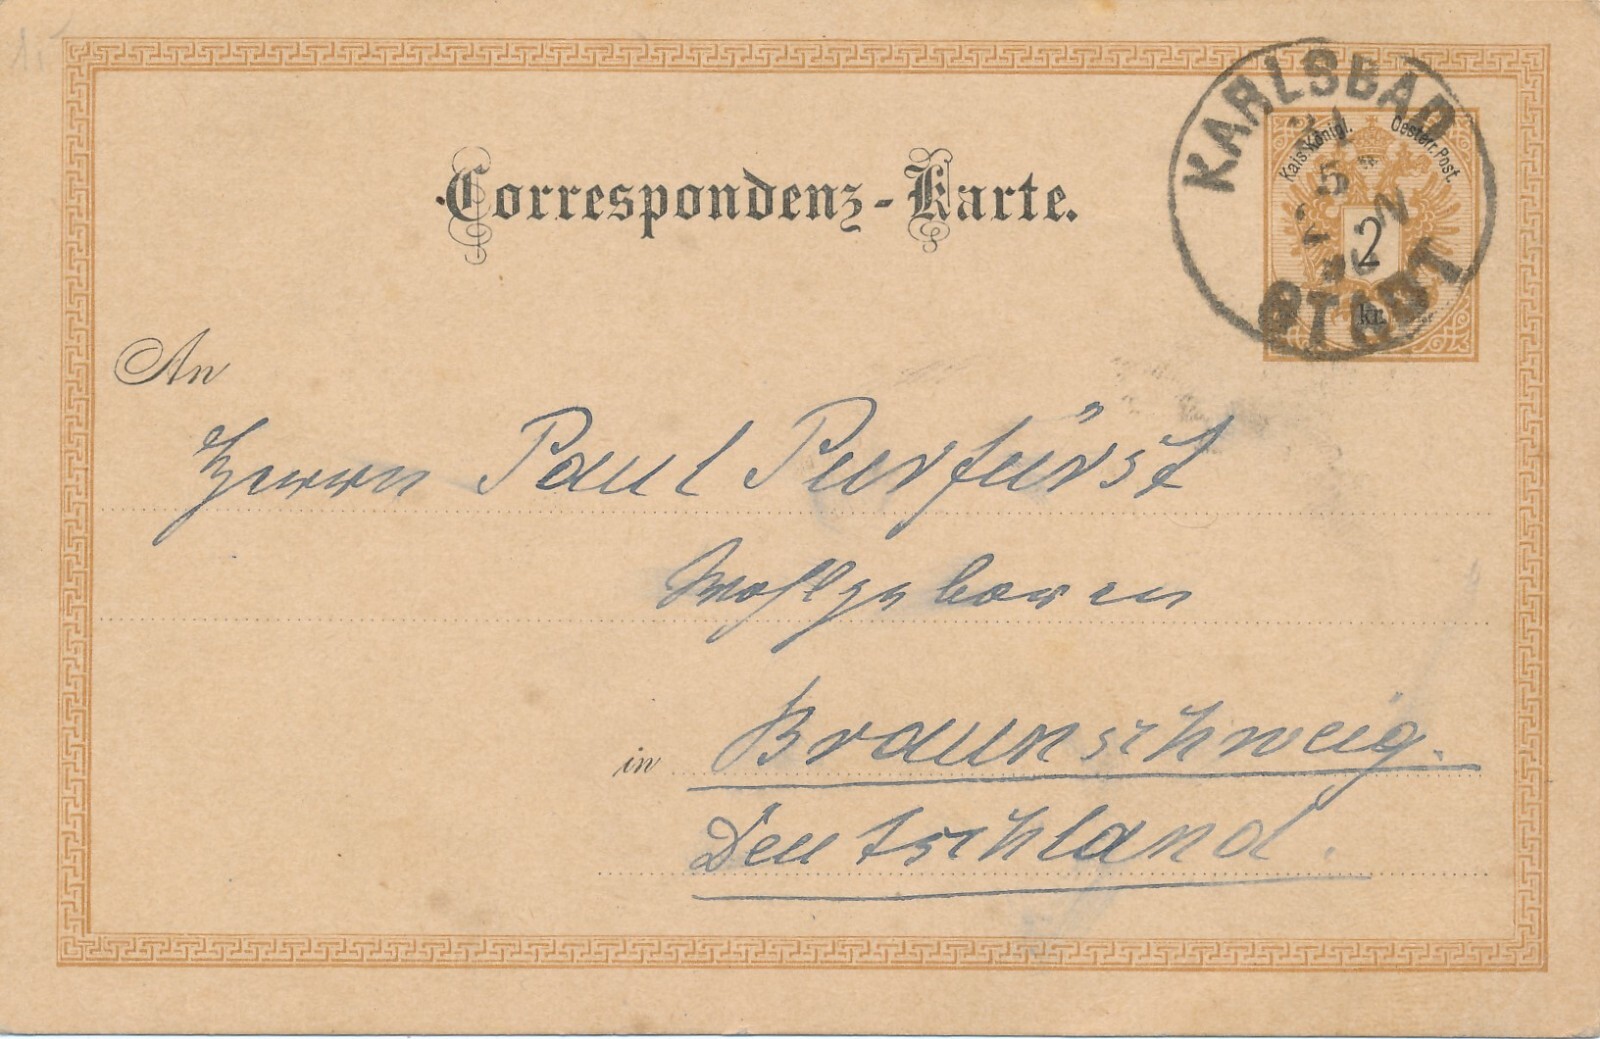 KARLSBAD
Kais. Königl. Oesterr. Post.
5
2
kr.
STADT
Correspondenz-Karte.
An
Herrn Paul Purfürst
Wohlgeboren
in Braunschweig.
Deutschland.